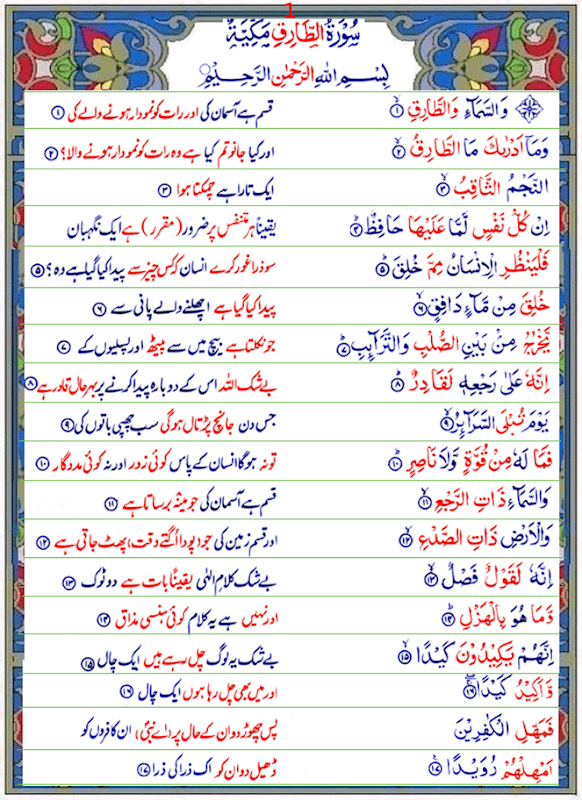 1
سُوْرَةُ الطَّارِقِ مَكِّيَّةٌ
بِسْمِ اللهِ الرَّحْمٰنِ الرَّحِيْمِ
وَالسَّمَآءِ وَالطَّارِقِ ۙ﴿۱﴾ قسم ہے آسمان کی اور رات کو نمودار ہونے والے کی ﴿۱﴾
وَمَاۤ اَدْرٰىكَ مَا الطَّارِقُ ۙ﴿۲﴾ اور کیا جانو تم کیا ہے وہ رات کو نمودار ہونے والا؟ ﴿۲﴾
النَّجْمُ الثَّاقِبُ ۙ﴿۳﴾ ایک تارا ہے چمکتا ہوا ﴿۳﴾
اِنْ كُلُّ نَفْسٍ لَّمَّا عَلَيْهَا حَافِظٌ ؕ﴿۴﴾ یقیناً ہر متنفس پر ضرور (مقرر) ہے ایک نگہبان
فَلْيَنْظُرِ الْاِنْسَانُ مِمَّ خُلِقَ ؕ﴿۵﴾ سو ذرا غور کرے انسان کس چیز سے پیدا کیا گیا ہے وہ؟ ﴿۵﴾
خُلِقَ مِنْ مَّآءٍ دَافِقٍ ۙ﴿۶﴾ پیدا کیا گیا ہے اچھلنے والے پانی سے ﴿۶﴾
يَّخْرُجُ مِنْۢ بَيْنِ الصُّلْبِ وَالتَّرَآئِبِ ؕ﴿۷﴾ جو نکلتا ہے بیچ میں سے پیٹھ اور پسلیوں کے ﴿۷﴾
اِنَّهٗ عَلٰى رَجْعِهٖ لَقَادِرٌ ؕ﴿۸﴾ بے شک اللہ اس کے دوبارہ پیدا کرنے پر بہر حال قادر ہے ﴿۸﴾
يَوْمَ تُبْلَى السَّرَآئِرُ ۙ﴿۹﴾ جس دن جانچ پڑتال ہوگی سب چھپی باتوں کی ﴿۹﴾
فَمَا لَهٗ مِنْ قُوَّةٍ وَّلَا نَاصِرٍ ؕ﴿۱۰﴾ تو نہ ہوگا انسان کے پاس کوئی زور اور نہ کوئی مددگار ﴿۱۰﴾
وَالسَّمَآءِ ذَاتِ الرَّجْعِ ۙ﴿۱۱﴾ قسم ہے آسمان کی جو مینہ برساتا ہے ﴿۱۱﴾
وَالْاَرْضِ ذَاتِ الصَّدْعِ ۙ﴿۱۲﴾ اور قسم زمین کی جو (پودا اگتے وقت) پھٹ جاتی ہے ﴿۱۲﴾
اِنَّهٗ لَقَوْلٌ فَصْلٌ ۙ﴿۱۳﴾ بے شک کلام الٰہی یقیناً بات ہے دو ٹوک ﴿۱۳﴾
وَّمَا هُوَ بِالْهَزْلِ ؕ﴿۱۴﴾ اور نہیں ہے یہ کلام کوئی ہنسی مذاق ﴿۱۴﴾
اِنَّهُمْ يَكِيْدُوْنَ كَيْدًا ۙ﴿۱۵﴾ بے شک یہ لوگ چل رہے ہیں ایک چال ﴿۱۵﴾
وَّاَكِيْدُ كَيْدًا ۚ﴿۱۶﴾ اور میں بھی چل رہا ہوں ایک چال ﴿۱۶﴾
فَمَهِّلِ الْكٰفِرِيْنَ پس چھوڑ دو ان کے حال پر (اے نبی) ان کافروں کو
اَمْهِلْهُمْ رُوَيْدًا ﴿۱۷﴾ ڈھیل دو ان کو اک ذرا کی ذرا ﴿۱۷﴾